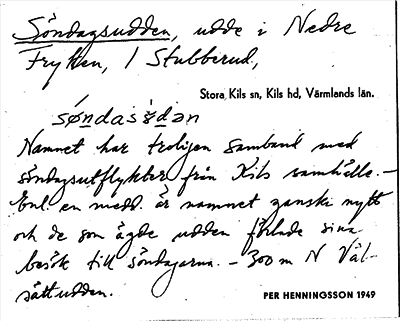 Söndagsudden, udde i Nedre
Fryken, / Stubberud,
Stora Kils sn, Kils hd, Värmlands län.
søndasødan
Namnet har troligen samband med
söndagsutflykter från Kils samhälle. –
Enl. en medd. är namnet ganska nytt
och de som ägde udden förlade sina
besök till söndagarna. – 300 m N Väl-
sättudden.
PER HENNINGSSON 1949